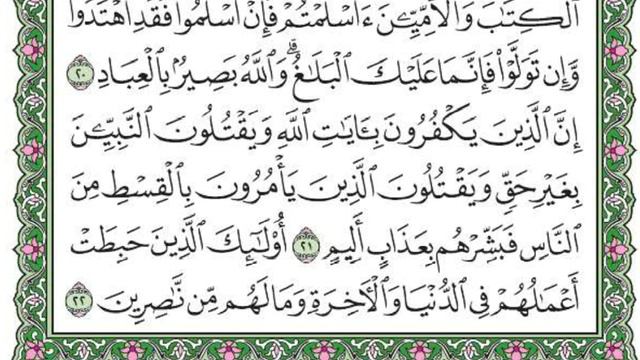 ٱلۡكِتَٰبَ وَٱلۡأُمِّيِّـۧنَ ءَأَسۡلَمۡتُمۡۚ فَإِنۡ أَسۡلَمُواْ فَقَدِ ٱهۡتَدَواْۖ
وَّإِن تَوَلَّوۡاْ فَإِنَّمَا عَلَيۡكَ ٱلۡبَلَٰغُۗ وَٱللَّهُ بَصِيرُۢ بِٱلۡعِبَادِ ٢٠
إِنَّ ٱلَّذِينَ يَكۡفُرُونَ بِـَٔايَٰتِ ٱللَّهِ وَيَقۡتُلُونَ ٱلنَّبِيِّـۧنَ
بِغَيۡرِ حَقّٖ وَيَقۡتُلُونَ ٱلَّذِينَ يَأۡمُرُونَ بِٱلۡقِسۡطِ مِنَ
ٱلنَّاسِ فَبَشِّرۡهُم بِعَذَابٍ أَلِيمٍ ٢١ أُوْلَٰٓئِكَ ٱلَّذِينَ حَبِطَتۡ
أَعۡمَٰلُهُمۡ فِي ٱلدُّنۡيَا وَٱلۡأٓخِرَةِ وَمَا لَهُم مِّن نَّٰصِرِينَ ٢٢